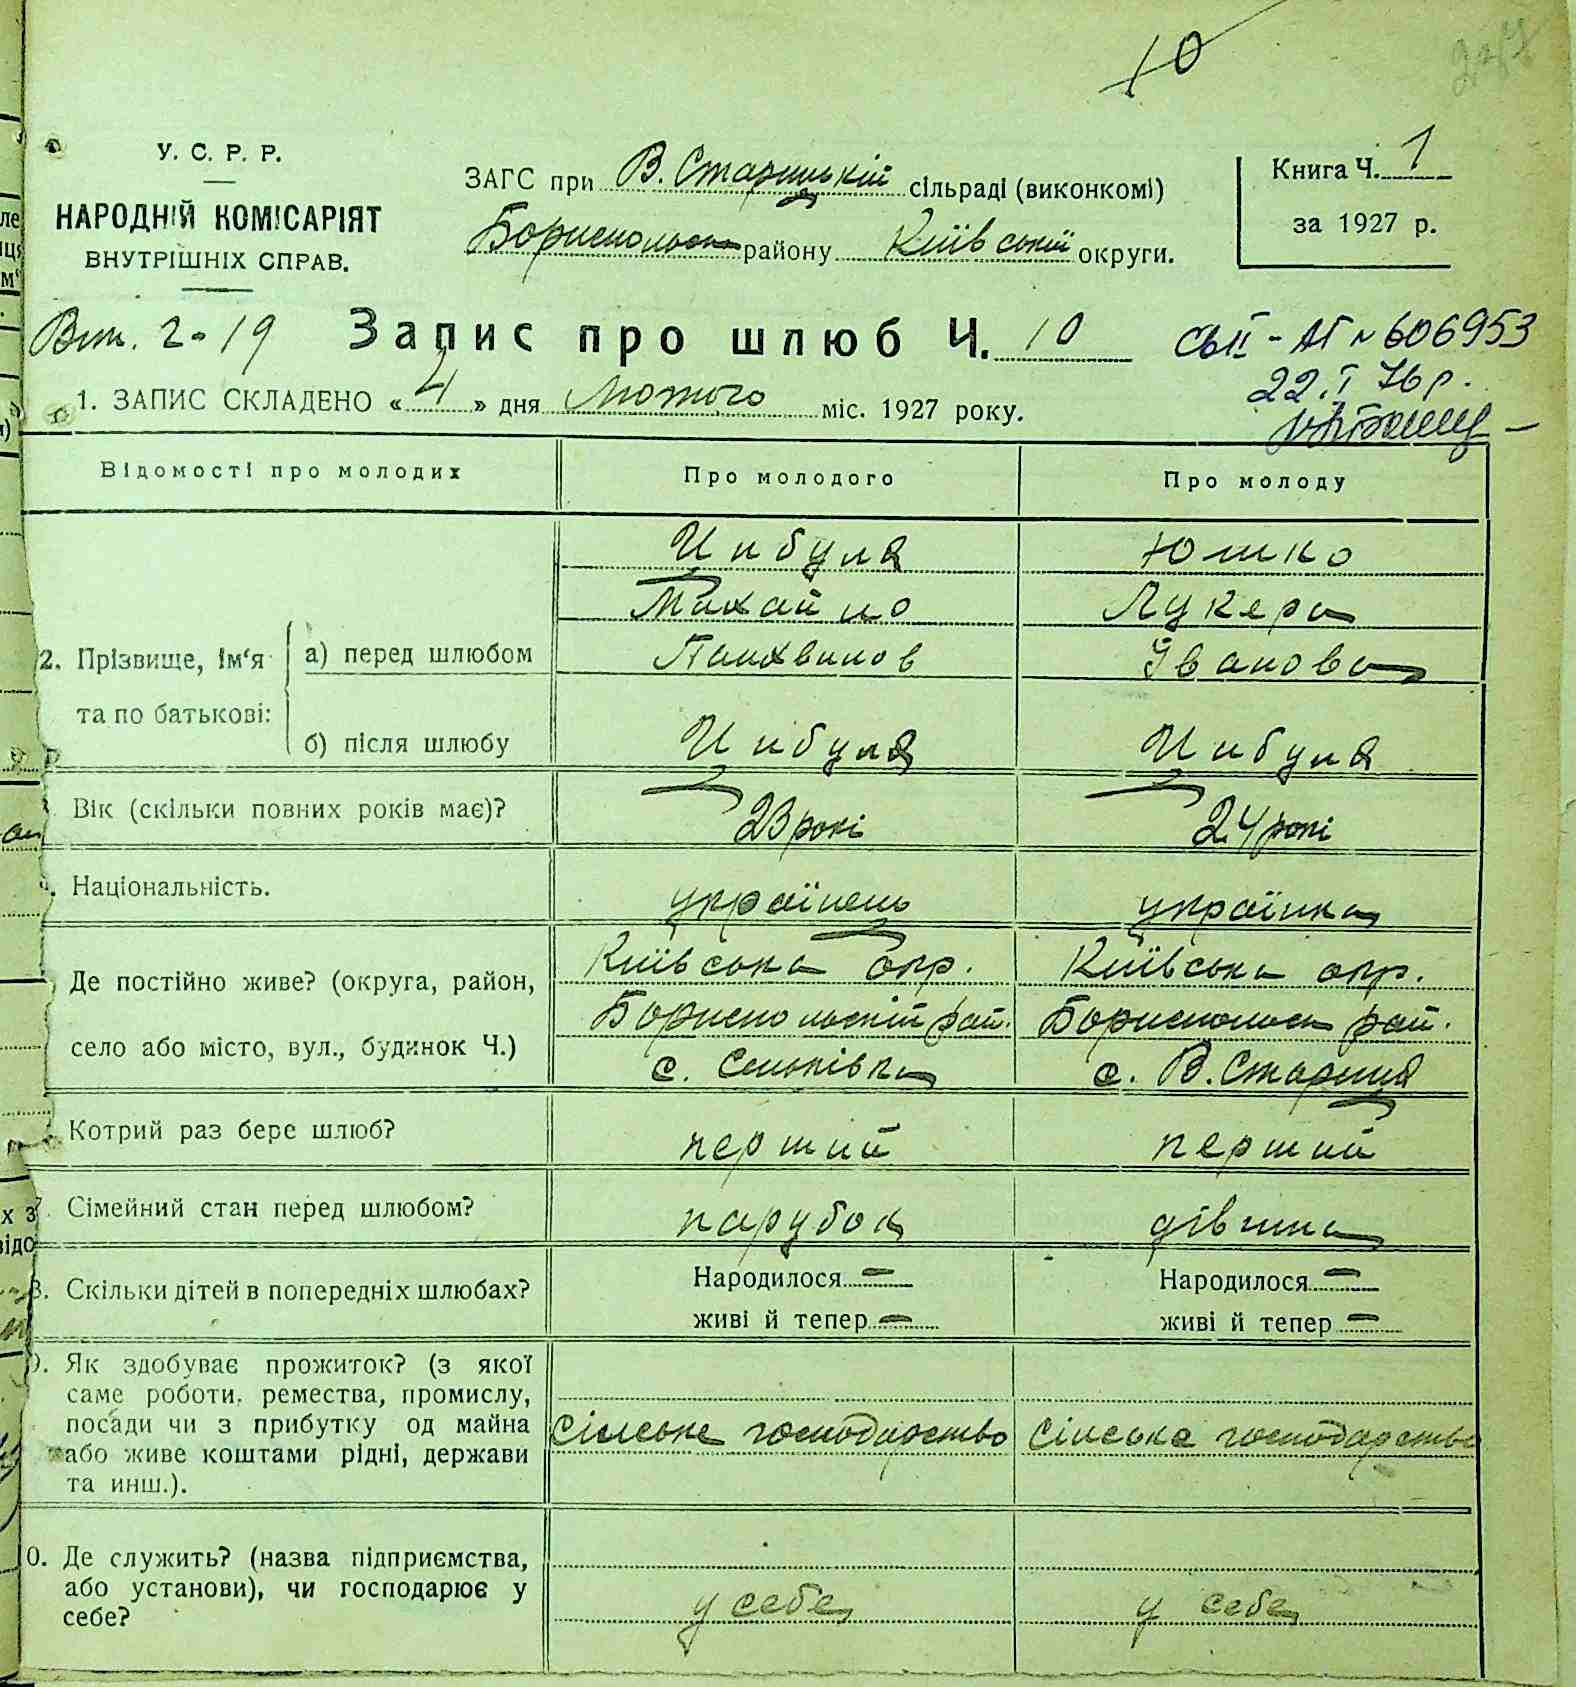 10
У. С. Р. Р.
НАРОДНІЙ КОМІСАРІЯТ
ВНУТРІШНІХ СПРАВ.
ЗАГС при В. Старицькій сільраді (виконкомі)
Бориспольськ району Київській округи.
Книга Ч. 1
за 1927 р.
2-19
Запис про шлюб Ч. 10
№ 606953
22.I 76 р.
1. ЗАПИС СКЛАДЕНО « 4 » дня Лютого міс. 1927 року.
Відомості про молодих Про молодого Про молоду
Цибуля Юшко
Михайло Лукера
2. Прізвище, ім‘я та по батькові: а) перед шлюбом Панхвилов Іванова
б) після шлюбу Цибуля Цибуля
Вік (скільки повних років має)? 23 рокі 24 рокі
Національність. українець українка
Де постійно живе? (округа, район, Київська окр. Київська окр.
село або місто, вул., будинок Ч.) Бориспольскій рай. Борисполськ рай.
с. Сеньківка с. В. Стариця
Котрий раз бере шлюб? перший перший
Сімейний стан перед шлюбом? парубок дівчина
8. Скільки дітей в попередніх шлюбах? Народилося — Народилося —
живі й тепер — живі й тепер —
9. Як здобуває прожиток? (з якої
саме роботи, ремества, промислу,
посади чи з прибутку од майна
або живе коштами рідні, держави
та инш.). Сілське господарство Сілське господарство
0. Де служить? (назва підприємства,
або установи), чи господарює у
себе? у себе у себе